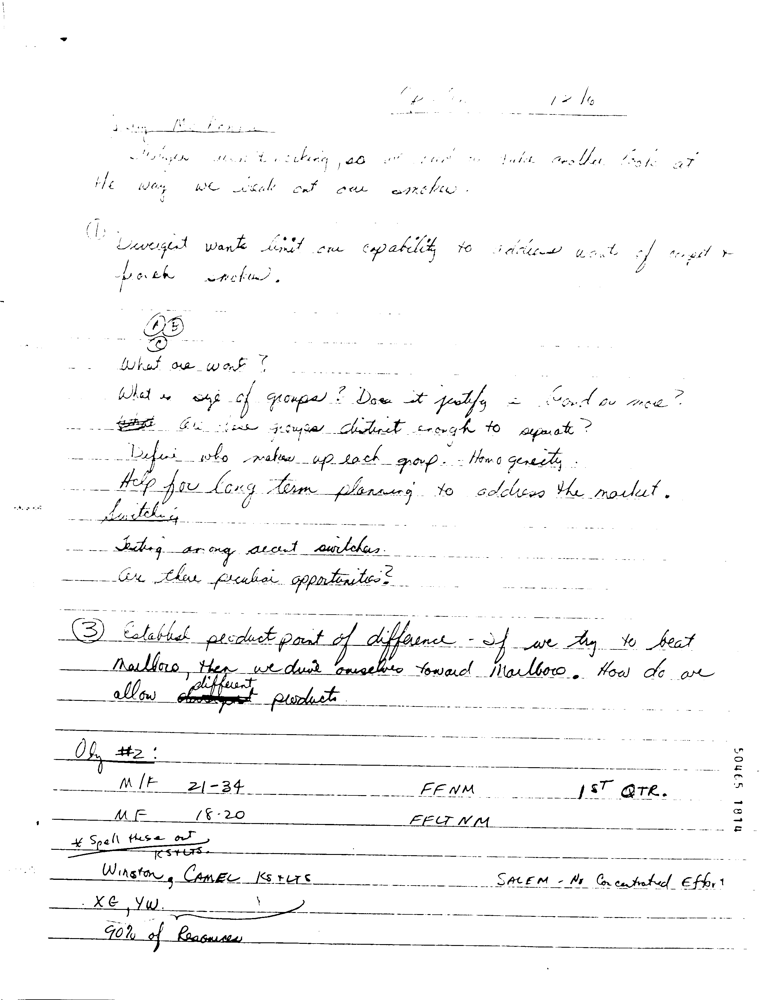 12/6
working, so take another look at
the way we our smoker.
(1) Divergent wants limit our capability to address wants of target +
smoker.
A B
C
What are want?
What is size of groups? Does it justify brand or more?
Are groups distinct enough to separate?
Define who makes up each group. Homogeneity.
Help for long term planning to address the market.
Switching
Testing among recent switchers.
Are there peculiar opportunities?
(3) Establish product point of difference - If we try to beat
Marlboro, then we drive ourselves toward Marlboro. How do we
allow different products
Obj #2:
M/F 21-34 FFNM 1ST QTR.
MF 18-20 FFLT NM
* Spell these out
KS+LTS.
Winston, CAMEL KS+LTS SALEM - No Concentrated Effort
XG, YW.
90% of Resources
50465 1814